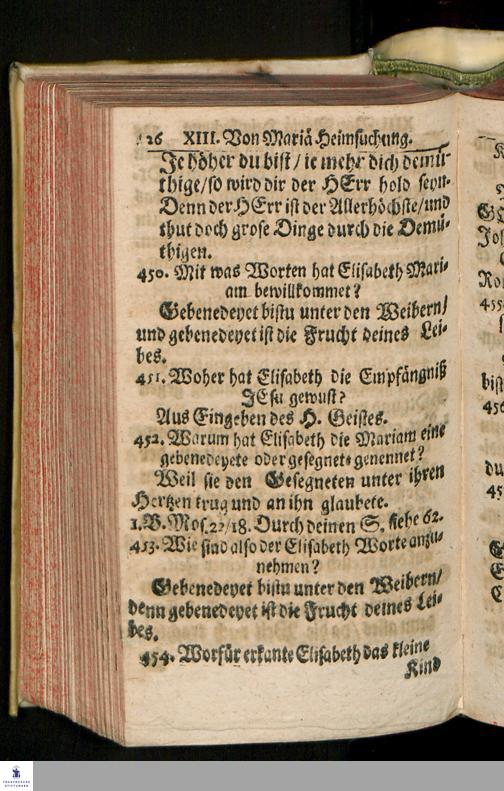 126 XIII. Von Mariä Heimsuchung.
Je höher du bist / ie mehr dich demü-
thige / so wird dir der HErr hold seyn.
Denn der HErr ist der Allerhöchste / und
thut doch grose Dinge durch die Demü-
thigen.
450. Mit was Worten hat Elisabeth Mari-
am bewillkommet?
Gebenedeyet bistu unter den Weibern /
und gebenedeyet ist die Frucht deines Lei-
bes.
451. Woher hat Elisabeth die Empfängniß
JEsu gewust?
Aus Eingeben des H. Geistes.
452. Warum hat Elisabeth die Mariam eine
gebenedeyete oder gesegnete genennet?
Weil sie den Gesegneten unter ihren
Hertzen trug und an ihn glaubete.
1. B. Mos. 22/18. Durch deinen S. siehe 62.
453. Wie sind also der Elisabeth Worte anzu-
nehmen?
Gebenedeyet bistu unter den Weibern /
denn gebenedeyet ist die Frucht deines Lei-
bes.
454. Worfür erkante Elisabeth das kleine
Kind
FRANCKESCHE
STIFTUNGEN